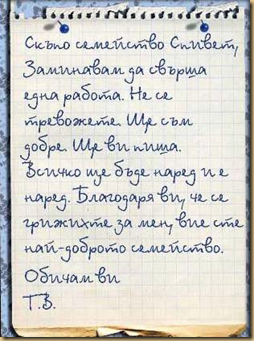 Скъпо семейство Спивет,
Заминавам да свърша
една работа. Не се
тревожете. Ще съм
добре. Ще ви пиша.
Всичко ще бъде наред и е
наред. Благодаря ви, че се
грижихте за мен, вие сте
най-доброто семейство.
Обичам ви
Т.В.